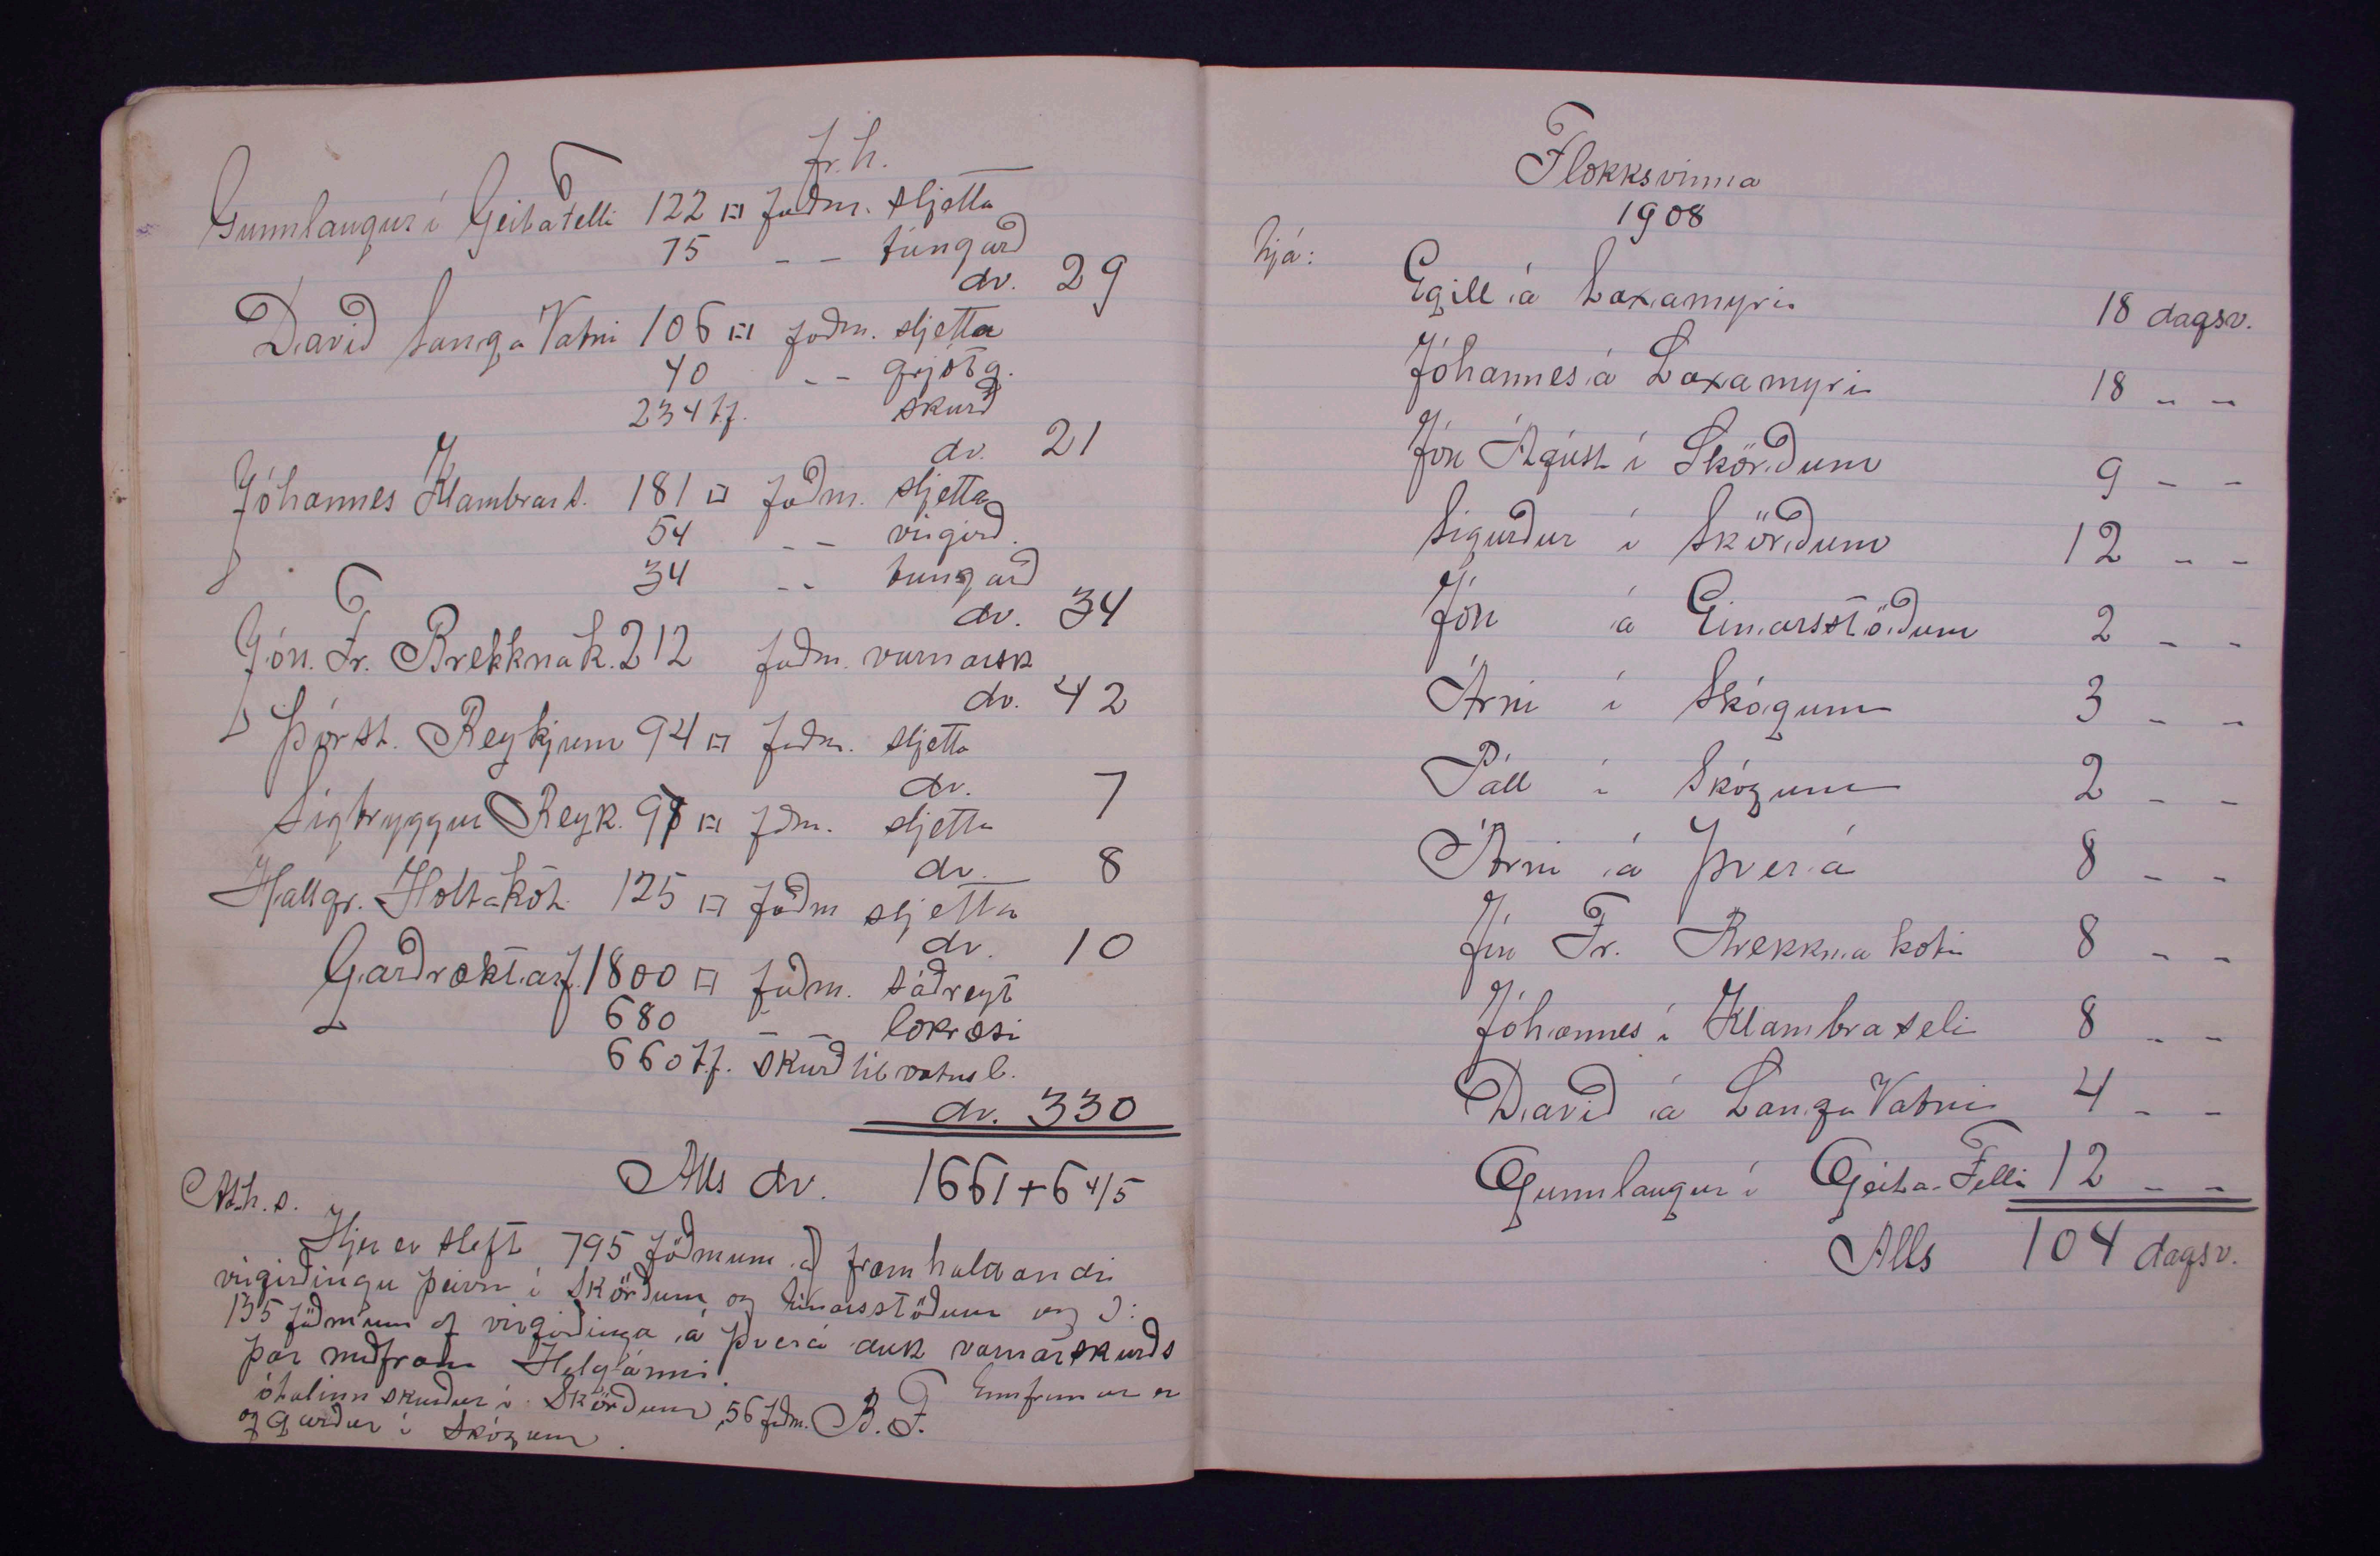 fr. h.
Gunnlaugur í Geitafelli 122 □ faðm. sljetta
75 - - túngarð
dv. 29
Davið Langa Vatni 106 □ faðm. sljetta
40 - - grjótg.
234 t.f. skurð
dv. 21
Jóhannes Klambras. 181 □ faðm. sljetta
54 - - virgirð.
34 - - tungarð
dv. 34
Jón. Fr. Brekknak. 212 faðm. varnarsk
dv. 42
Þorst. Reykjum 94 □ faðm. sljetta
dv. 7
Sigtryggur Reyk. 98 □ fðm. sljetta
dv. 8
Hallgr. Holtakot. 125 □ faðm sljetta
dv. 10
Garðræktarf. 1800 □ faðm. sáðreyt
680 - - lokræsi
660 t.f. skurð til vatnsl.
dv. 330
Alls dv. 1661 + 6 4/5
Ath.s.
Hjer er sleft 795 föðmum af framhaldandi
virgirðingu þeirri í Skörðum og Einarsstöðum og
135 föðmum af virgirðinga á Þverá auk varnarskurðs
þar meðfram Helgánni. Ennfremur er
ótalinn skurður í Skörðum, 56 faðm. B. F.
og garður í Skógum.
Flokksvinna
1908
hjá:
Egill á Laxamýri 18 dagsv.
Jóhannes á Laxamyri 18 - -
Jón Ágúst í Skörðum 9 - -
Sigurður í Skörðum 12 - -
Jón á Einarsstöðum 2 - -
Árni í Skógum 3 - -
Páll í Skógum 2 - -
Árni á Þverá 8 - -
Jón Fr. Brekknakoti 8 - -
Jóhannes í Klambraseli 8 - -
Davið á Langa Vatni 4 - -
Gunnlaugur í Geita-Felli 12 - -
Alls 104 dagsv.